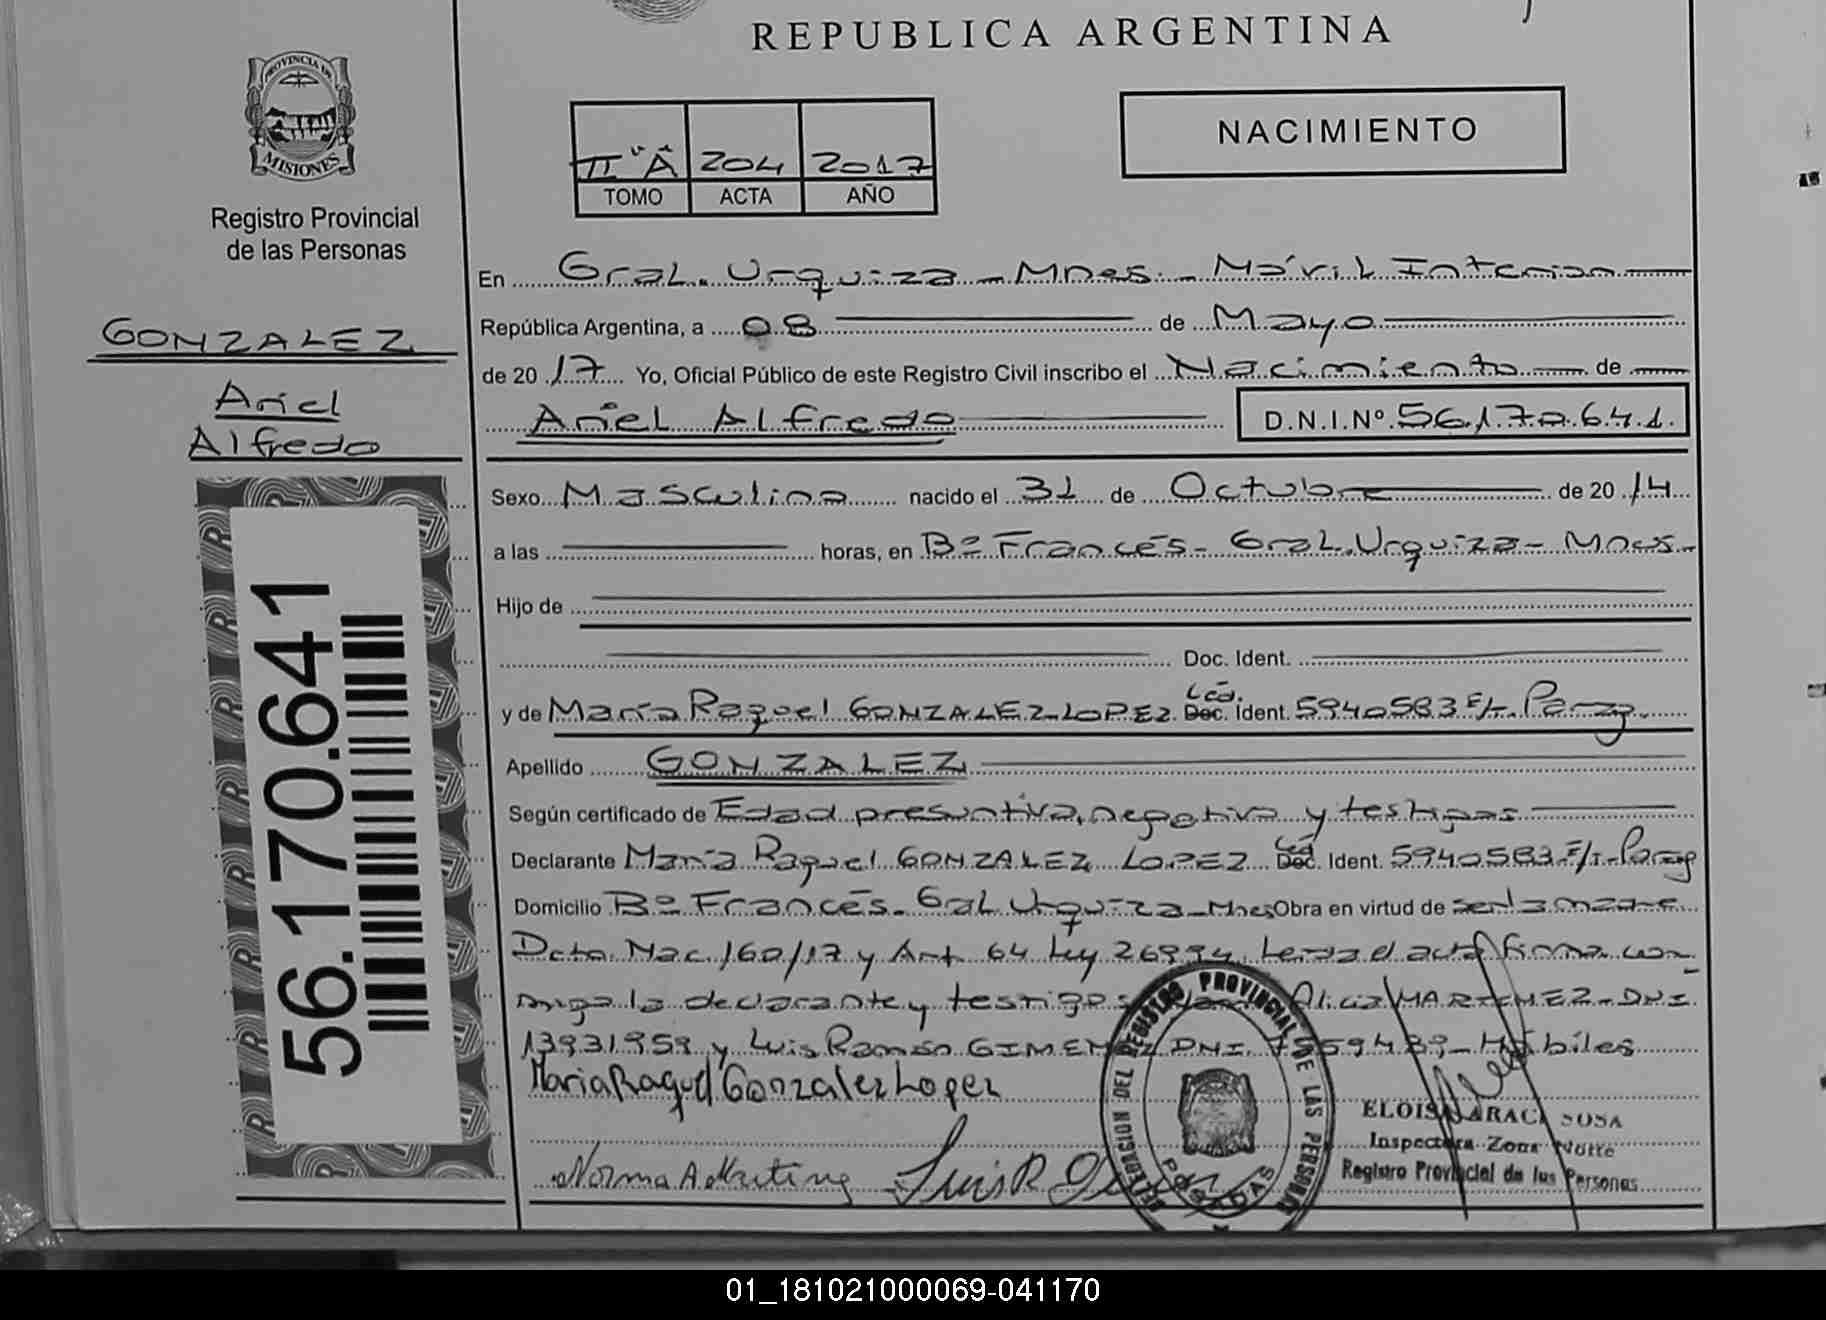 REPUBLICA ARGENTINA
PROVINCIA DE
MISIONES
Registro Provincial
de las Personas
GONZALEZ
Ariel
Alfredo
56.170.641
II "A" 204 2017
TOMO ACTA AÑO
NACIMIENTO
En Gral. Urquiza - Mnes. - Móvil Interior
República Argentina, a 08 de Mayo
de 2017 Yo, Oficial Público de este Registro Civil inscribo el Nacimiento de
Ariel Alfredo D.N.I.Nº 56.170.641.
Sexo Masculino nacido el 31 de Octubre de 2014
a las horas, en Bº Francés - Gral. Urquiza - Mnes -
Hijo de
Doc. Ident.
y de María Raquel GONZALEZ LOPEZ Céd. Doc. Ident. 5940583 F/t. Parag.
Apellido GONZALEZ
Según certificado de Edad presuntiva, negativa y testigos
Declarante María Raquel GONZALEZ LOPEZ Céd Doc. Ident. 5940583 F/t. Parag
Domicilio Bº Francés - Gral Urquiza - Mnes Obra en virtud de ser la madre
Dcto. Nac. 160/17 y Art. 64 Ley 26994. Leída el acta firma con
migo la declarante y testigos Alicia MARTINEZ - DNI.
13931959 y Luis Ramón GIMENEZ DNI. Hábiles
Maria Raquel Gonzalez Lopez
Norma A Martinez Luis R
DEL REGISTRO PROVINCIAL DE LAS PERSONAS
POSADAS
ELOISA ARACI SOSA
Inspectora Zona Norte
Registro Provincial de las Personas
01_181021000069-041170